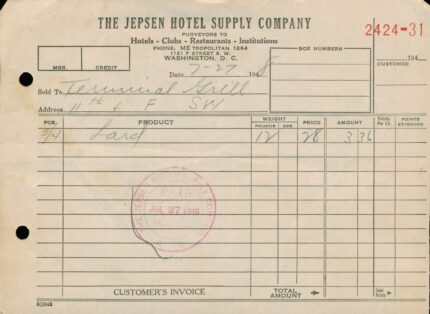 THE JEPSEN HOTEL SUPPLY COMPANY
2424-31
PURVEYORS TO
Hotels - Clubs - Restaurants - Institutions
PHONE: METROPOLITAN 1254
1121 F STREET S. W.
WASHINGTON, D. C.
MGR. CREDIT
BOX NUMBERS
194
CUSTOMER
Date 7-27 1948
Sold To Terminal Grill
Address 11th & F SW
PCS. PRODUCT WEIGHT POUNDS OZS. PRICE AMOUNT Points Per Lb. POINTS EXTENDED
3/4 Lard 12 28 3 36
THE JEPSEN
PAID
JUL 27 1948
CUSTOMER'S INVOICE
TOTAL AMOUNT
Total Points